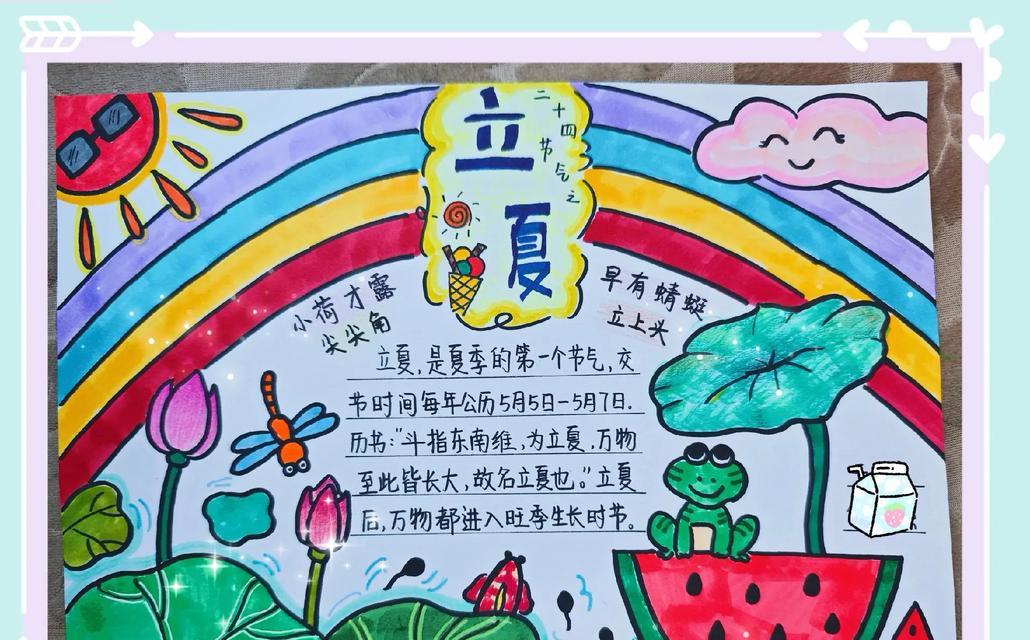 立夏
二十四节气之
小荷才露
尖尖角
早有蜻蜓
立上头
立夏，是夏季的第一个节气，交
节时间每年公历5月5日-5月7日.
历书："斗指东南维，为立夏.万物
至此皆长大，故名立夏也。"立夏
后，万物都进入旺季生长时节。